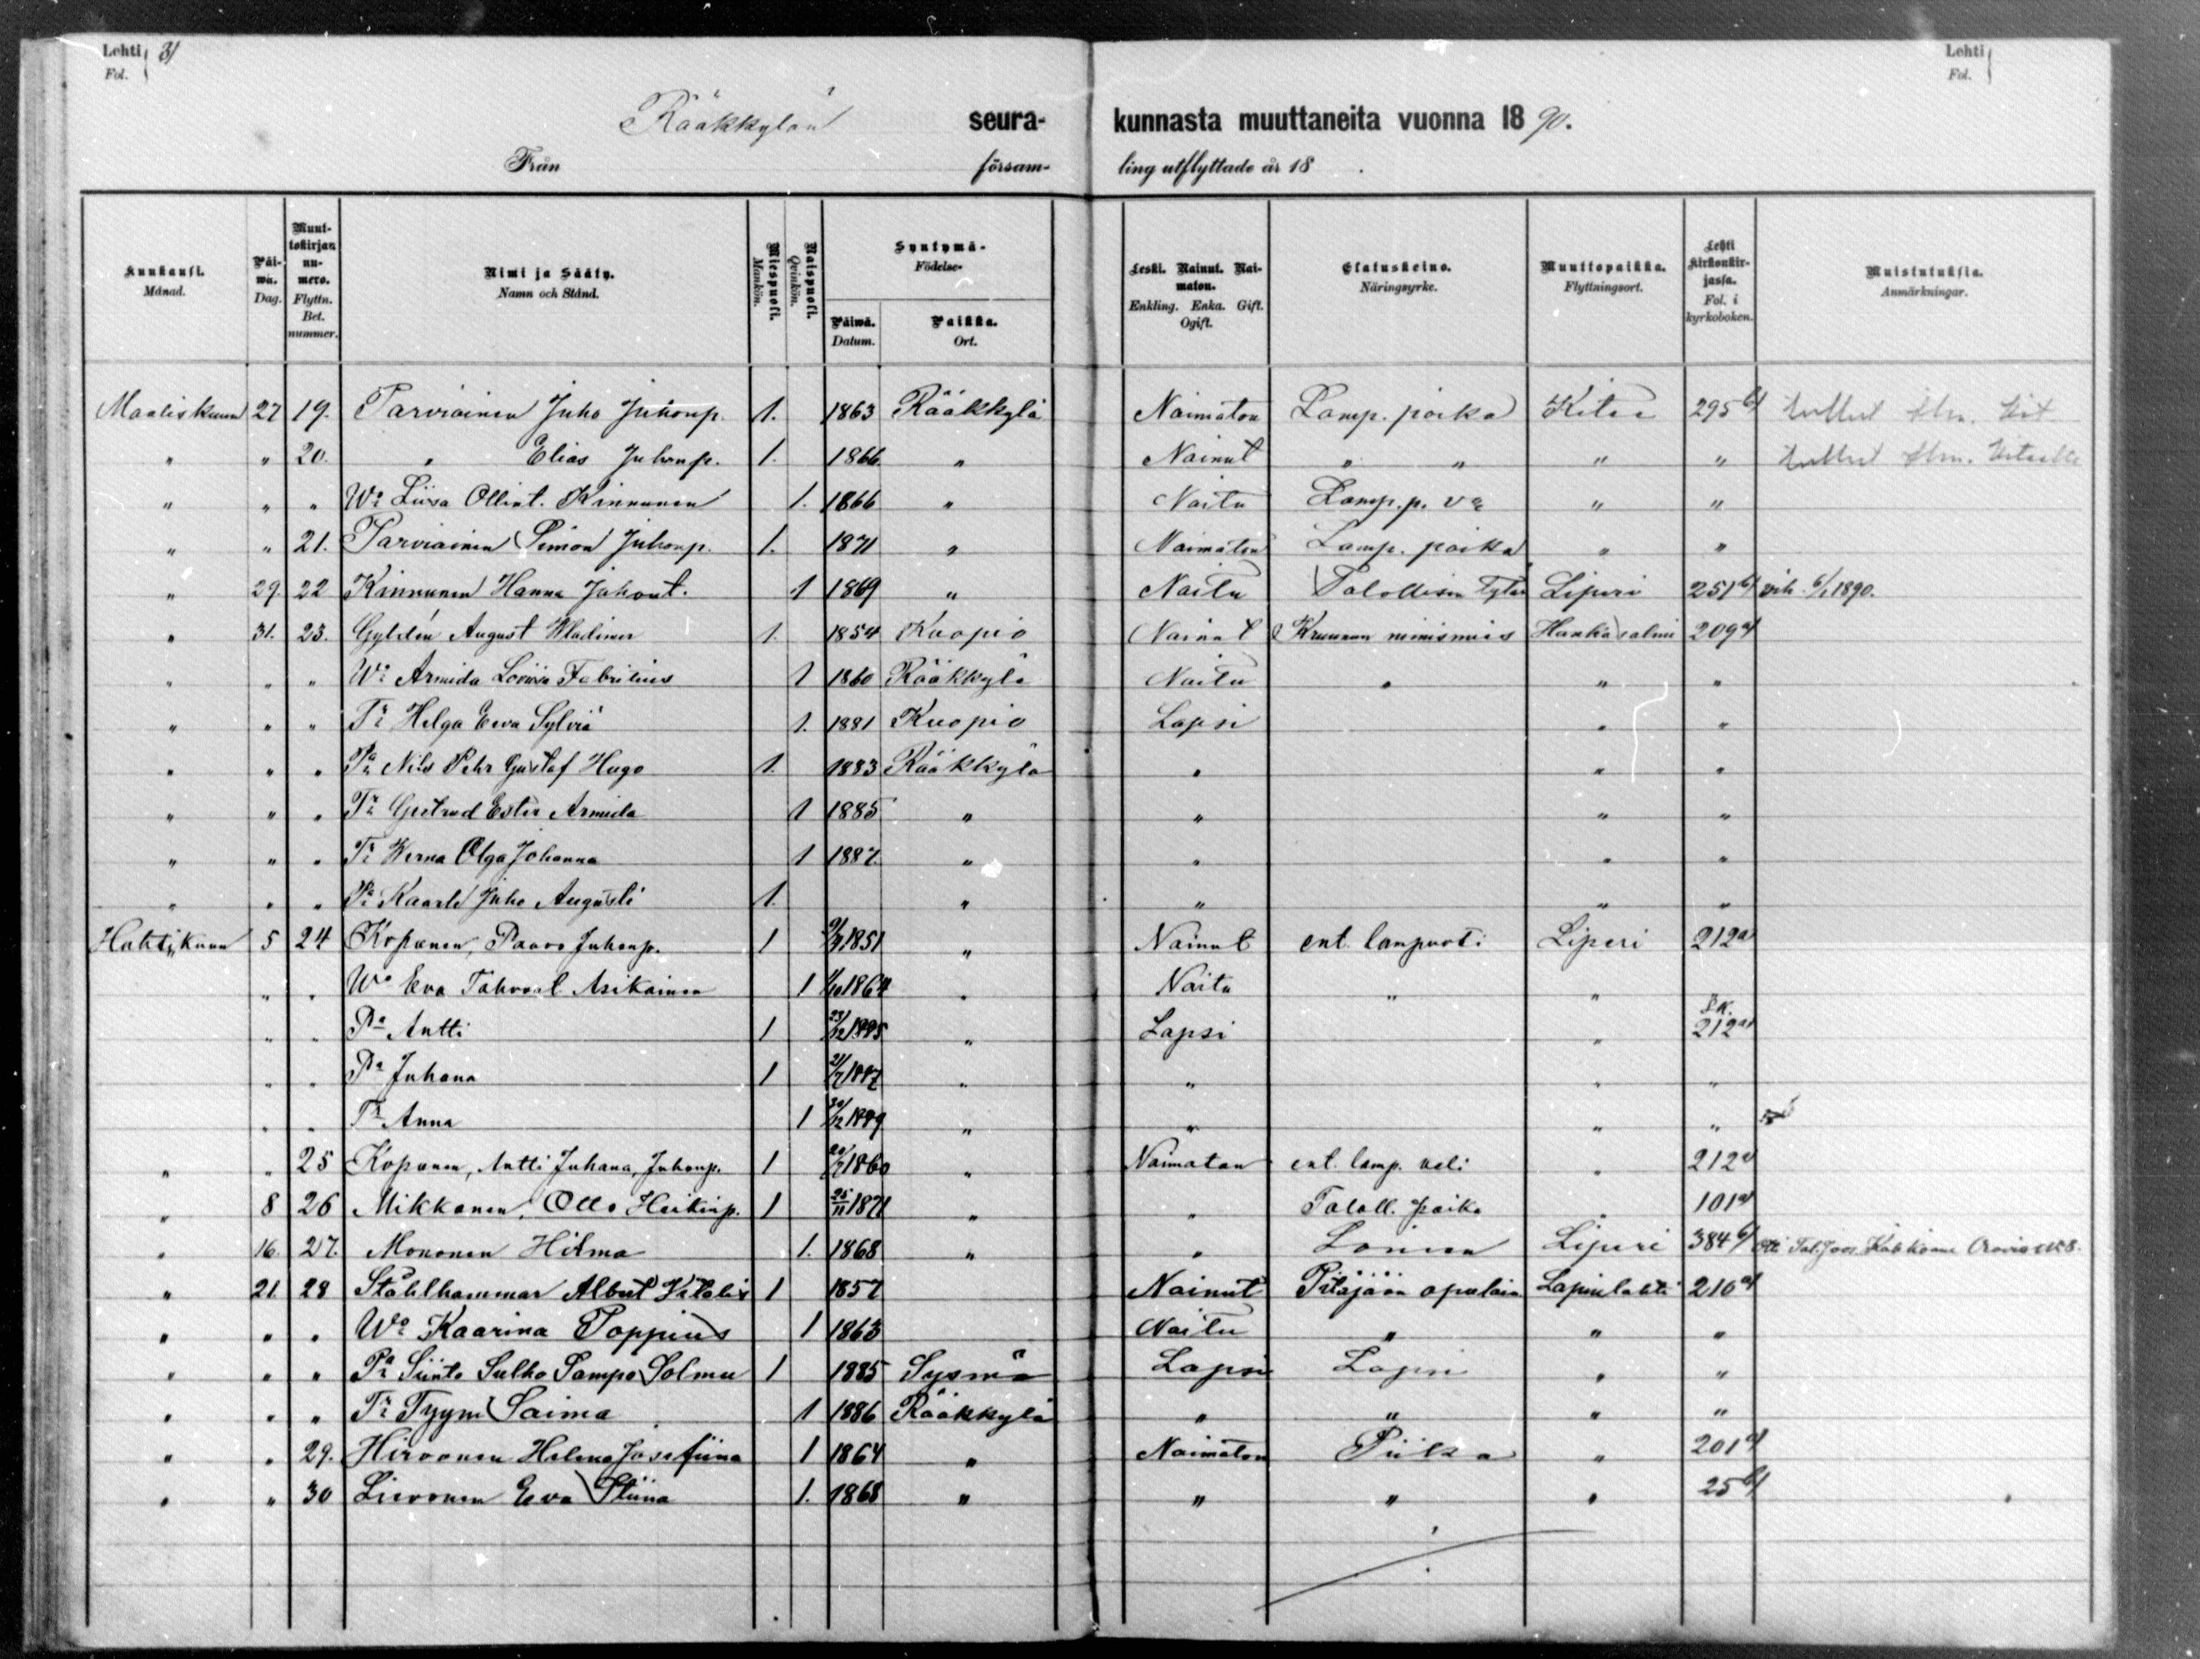 Lehti 31 Lehti
Fol. Fol.
Rääkkylän seura- kunnasta muuttaneita vuonna 1890.
Från försam- ling utflyttade år 18 .
Kuukausi. Månad. Päi-wä. Dag. Muut-tokirjan nu-mero. Flyttn. Bet. nummer. Nimi ja Sääty. Namn och Stånd. Miespuoli. Mankön. Naispuoli. Qvinkön. Syntymä- Födelse- Päiwä. Datum. Paikka. Ort. Leski. Nainut. Nai-maton. Enkling. Enka. Gift. Ogift. Elatuskeino. Näringsyrke. Muuttopaikka. Flyttningsort. Lehti kirkonkir-jassa. Fol. i kyrkoboken. Muistutuksia. Anmärkningar.
Maaliskuun 27 19. Parviainen Juho Juhonp. 1. 1863 Rääkkylä Naimaton Lamp. poika Kitee 295 b/
" " 20. " Elias Juhonp. 1. 1866 " Nainut " " " "
" " " Wo Liisa Ollint. Kinnunen 1. 1866 " Naitu Lamp. p. va " "
" " 21. Parviainen Simon Juhonp. 1. 1871 " Naimaton Lamp. poika " "
" 29. 22 Kinnunen Hanna Juhont. 1 1869 " Naitu Talollisen tytär Liperi 251 b/ vih. 6/1 1890.
" 31. 23. Gyldén August Wladimir 1. 1854 Kuopio Nainut Kruunun nimismies Hankasalmi 209 a/
" " " Wo Armida Lovisa Fabritius 1 1860 Rääkkylä Naitu " " "
" " " Tr Helga Eeva Sylvia 1. 1881 Kuopio Lapsi " "
" " " Pa Nils Pehr Gustaf Hugo 1. 1883 Rääkkylä " " "
" " " Tr Gertrud Ester Armida 1 1885 " " " "
" " " Tr Werna Olga Johanna 1 1887. " " " "
" " " Pa Kaarle Juho Augusti 1. " " " "
Huhtikuun 5 24 Koponen, Paavo Juhonp. 1 1851 " Nainut ent. lampuoti Liperi 212 a/
" " Wo Eva Tahvont. Asikainen 1 1864 " Naitu " " "
" " Pa Antti 1 23/12 1885 " Lapsi " S.K. 212 a/
" " Pa Juhana 1 21/7 1887 " " " "
" " Tr Anna 1 30/12 1889 " " " "
" " 25 Koponen, Antti Juhana, Juhonp. 1 20/7 1860 " Naimaton ent. lamp. veli " 212 a/
" 8 26 Mikkonen, Otto Heikinp. 1 25/11 1871 " " Taloll. poika " 101 a/
" 16. 27. Mononen Hilma 1. 1868 " " Loinen Liperi 384 b/
" 21. 28 Stålhammar Albert Vitalis 1 1857 Nainut Pitäjään apulain Lapinlahti 216 a/
" " " Wo Kaarina Poppius 1 1863 Naitu " " "
" " " Pa Siinto Sulho Sampo Solmu 1 1885 Sysmä Lapsi Lapsi " "
" " " Tr Tyyni Saima 1 1886 Rääkkylä " " " "
" " 29. Hirvonen Helena Josefiina 1 1864 " Naimaton Piika " 201 a/
" " 30 Lievonen Eva Stiina 1. 1868 " " " " 25 b/